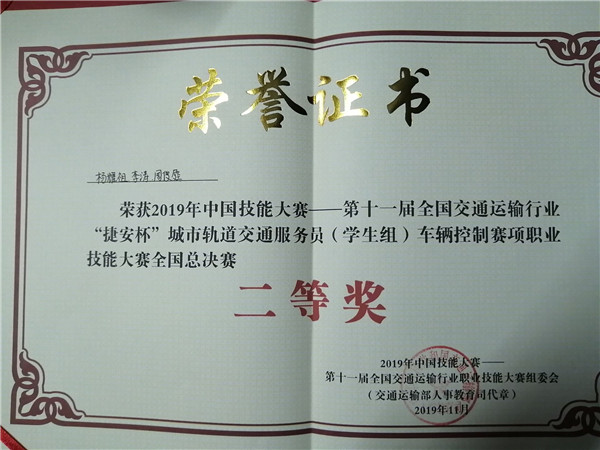 荣誉证书
杨雄组 李涛 周良庭
荣获2019年中国技能大赛——第十一届全国交通运输行业
“捷安杯”城市轨道交通服务员（学生组）车辆控制赛项职业
技能大赛全国总决赛
二等奖
2019年中国技能大赛——
第十一届全国交通运输行业职业技能大赛组委会
（交通运输部人事教育司代章）
2019年11月